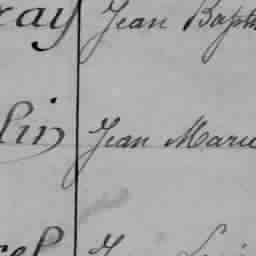 ray Jean Bapti
lin Jean Marie
rel